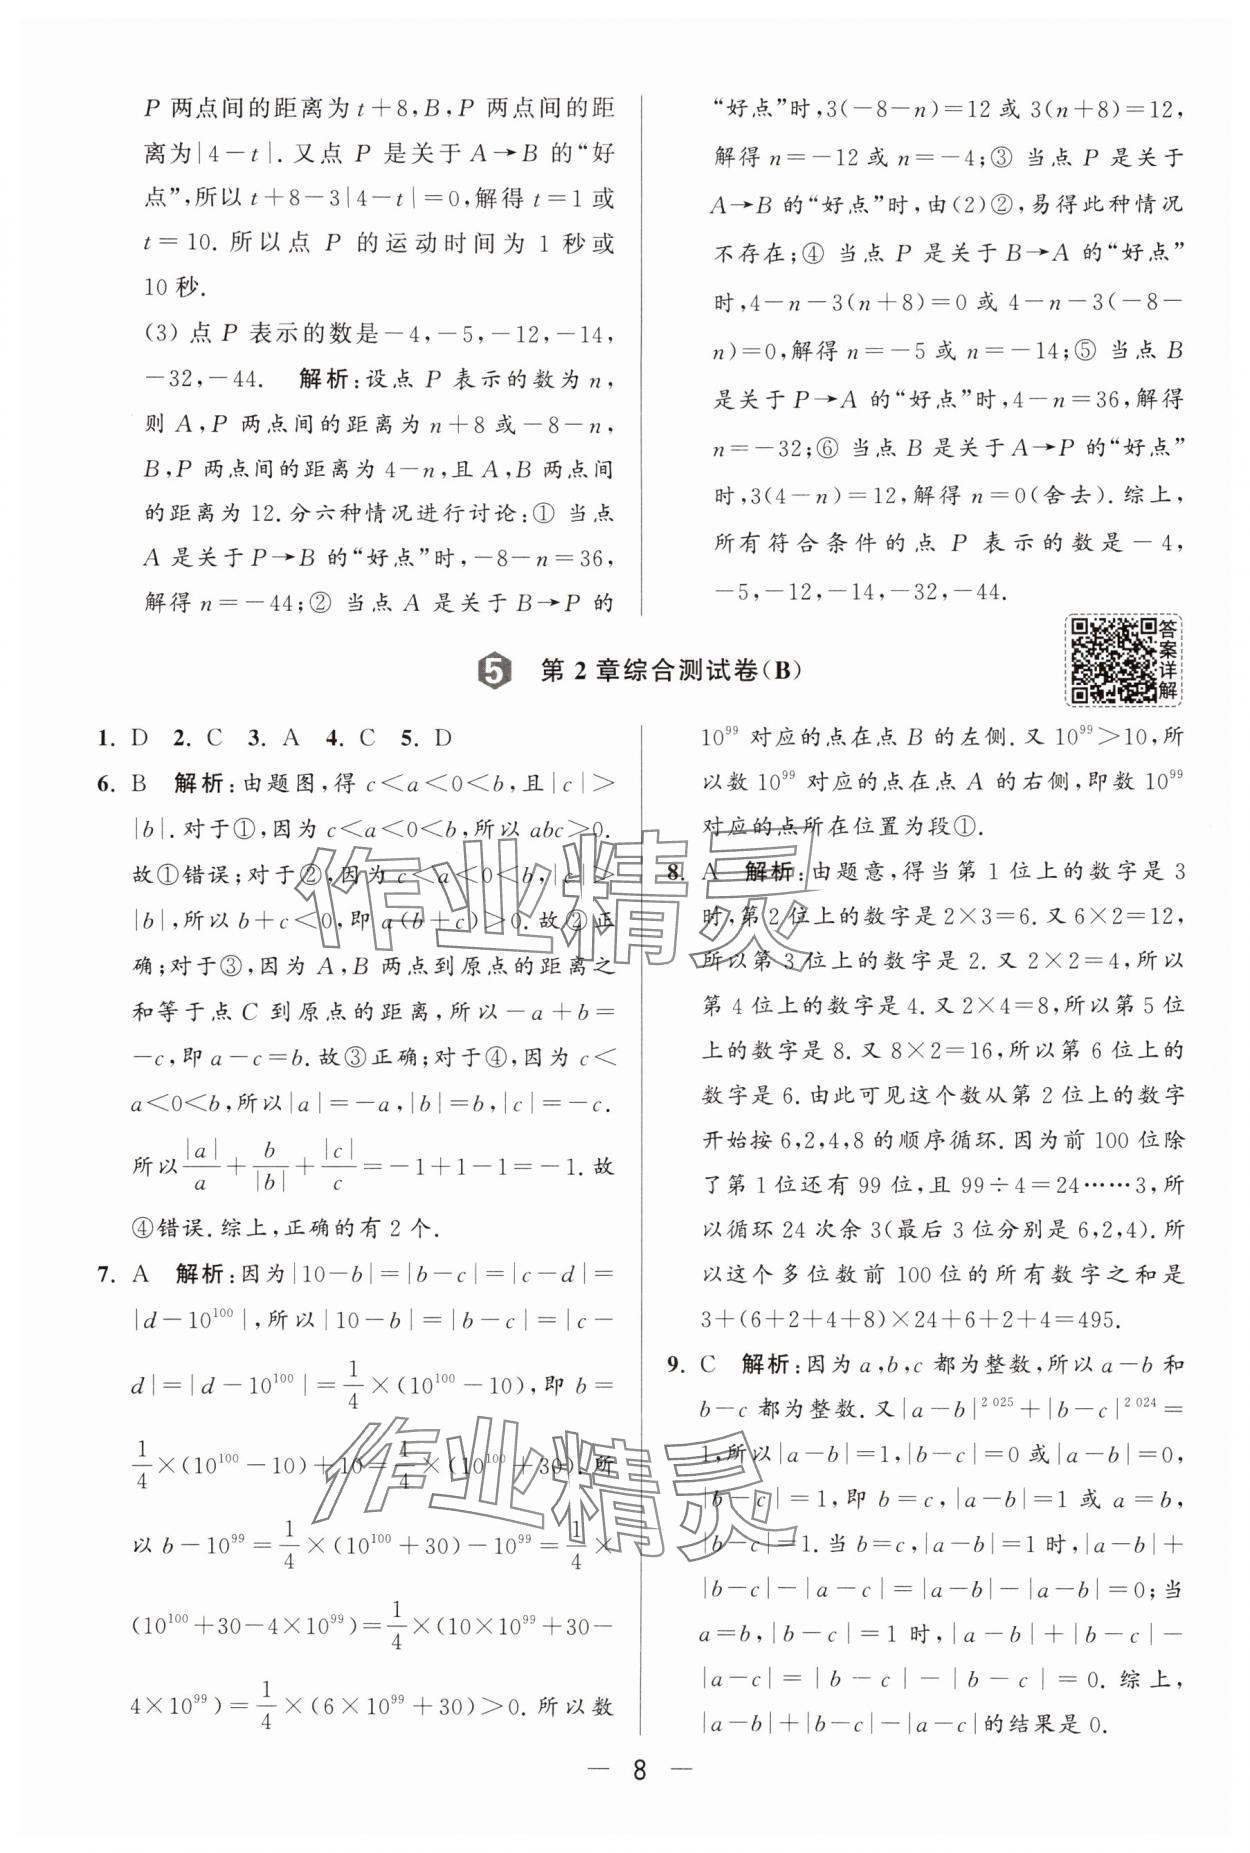 P 两点间的距离为 t+8,B,P 两点间的距
离为|4-t|.又点 P 是关于 A→B 的“好
点”,所以 t+8-3|4-t|=0,解得 t=1 或
t=10.所以点 P 的运动时间为 1 秒或
10 秒.
(3) 点 P 表示的数是-4,-5,-12,-14,
-32,-44. 解析:设点 P 表示的数为 n,
则 A,P 两点间的距离为 n+8 或-8-n,
B,P 两点间的距离为 4-n,且 A,B 两点间
的距离为 12.分六种情况进行讨论:① 当点
A 是关于 P→B 的“好点”时,-8-n=36,
解得 n=-44;② 当点 A 是关于 B→P 的
“好点”时,3(-8-n)=12 或 3(n+8)=12,
解得 n=-12 或 n=-4;③ 当点 P 是关于
A→B 的“好点”时,由(2)②,易得此种情况
不存在;④ 当点 P 是关于 B→A 的“好点”
时,4-n-3(n+8)=0 或 4-n-3(-8-
n)=0,解得 n=-5 或 n=-14;⑤ 当点 B
是关于 P→A 的“好点”时,4-n=36,解得
n=-32;⑥ 当点 B 是关于 A→P 的“好点”
时,3(4-n)=12,解得 n=0(舍去).综上,
所有符合条件的点 P 表示的数是-4,
-5,-12,-14,-32,-44.
5 第 2 章综合测试卷(B)
答案详解
1. D 2. C 3. A 4. C 5. D
6. B 解析:由题图,得 c<a<0<b,且|c|>
|b|.对于①,因为 c<a<0<b,所以 abc>0.
故①错误;对于②,因为 c<a<0<b,|c|>
|b|,所以 b+c<0,即 a(b+c)>0.故②正
确;对于③,因为 A,B 两点到原点的距离之
和等于点 C 到原点的距离,所以-a+b=
-c,即 a-c=b.故③正确;对于④,因为 c<
a<0<b,所以|a|=-a,|b|=b,|c|=-c.
所以|a|/a+b/|b|+|c|/c=-1+1-1=-1.故
④错误.综上,正确的有 2 个.
7. A 解析:因为|10-b|=|b-c|=|c-d|=
|d-10¹⁰⁰|,所以|10-b|=|b-c|=|c-
d|=|d-10¹⁰⁰|=1/4×(10¹⁰⁰-10),即 b=
1/4×(10¹⁰⁰-10)+10=1/4×(10¹⁰⁰+30).所
以 b-10⁹⁹=1/4×(10¹⁰⁰+30)-10⁹⁹=1/4×
(10¹⁰⁰+30-4×10⁹⁹)=1/4×(10×10⁹⁹+30-
4×10⁹⁹)=1/4×(6×10⁹⁹+30)>0.所以数
10⁹⁹ 对应的点在点 B 的左侧.又 10⁹⁹>10,所
以数 10⁹⁹ 对应的点在点 A 的右侧,即数 10⁹⁹
对应的点所在位置为段①.
8. A 解析:由题意,得当第 1 位上的数字是 3
时,第 2 位上的数字是 2×3=6.又 6×2=12,
所以第 3 位上的数字是 2.又 2×2=4,所以
第 4 位上的数字是 4.又 2×4=8,所以第 5 位
上的数字是 8.又 8×2=16,所以第 6 位上的
数字是 6.由此可见这个数从第 2 位上的数字
开始按 6,2,4,8 的顺序循环.因为前 100 位除
了第 1 位还有 99 位,且 99÷4=24……3,所
以循环 24 次余 3(最后 3 位分别是 6,2,4).所
以这个多位数前 100 位的所有数字之和是
3+(6+2+4+8)×24+6+2+4=495.
9. C 解析:因为 a,b,c 都为整数,所以 a-b 和
b-c 都为整数.又|a-b|²⁰²⁵+|b-c|²⁰²⁴=
1,所以|a-b|=1,|b-c|=0 或|a-b|=0,
|b-c|=1,即 b=c,|a-b|=1 或 a=b,
|b-c|=1.当 b=c,|a-b|=1 时,|a-b|+
|b-c|-|a-c|=|a-b|-|a-b|=0;当
a=b,|b-c|=1 时,|a-b|+|b-c|-
|a-c|=|b-c|-|b-c|=0.综上,
|a-b|+|b-c|-|a-c|的结果是 0.
作业精灵
作业精灵
— 8 —